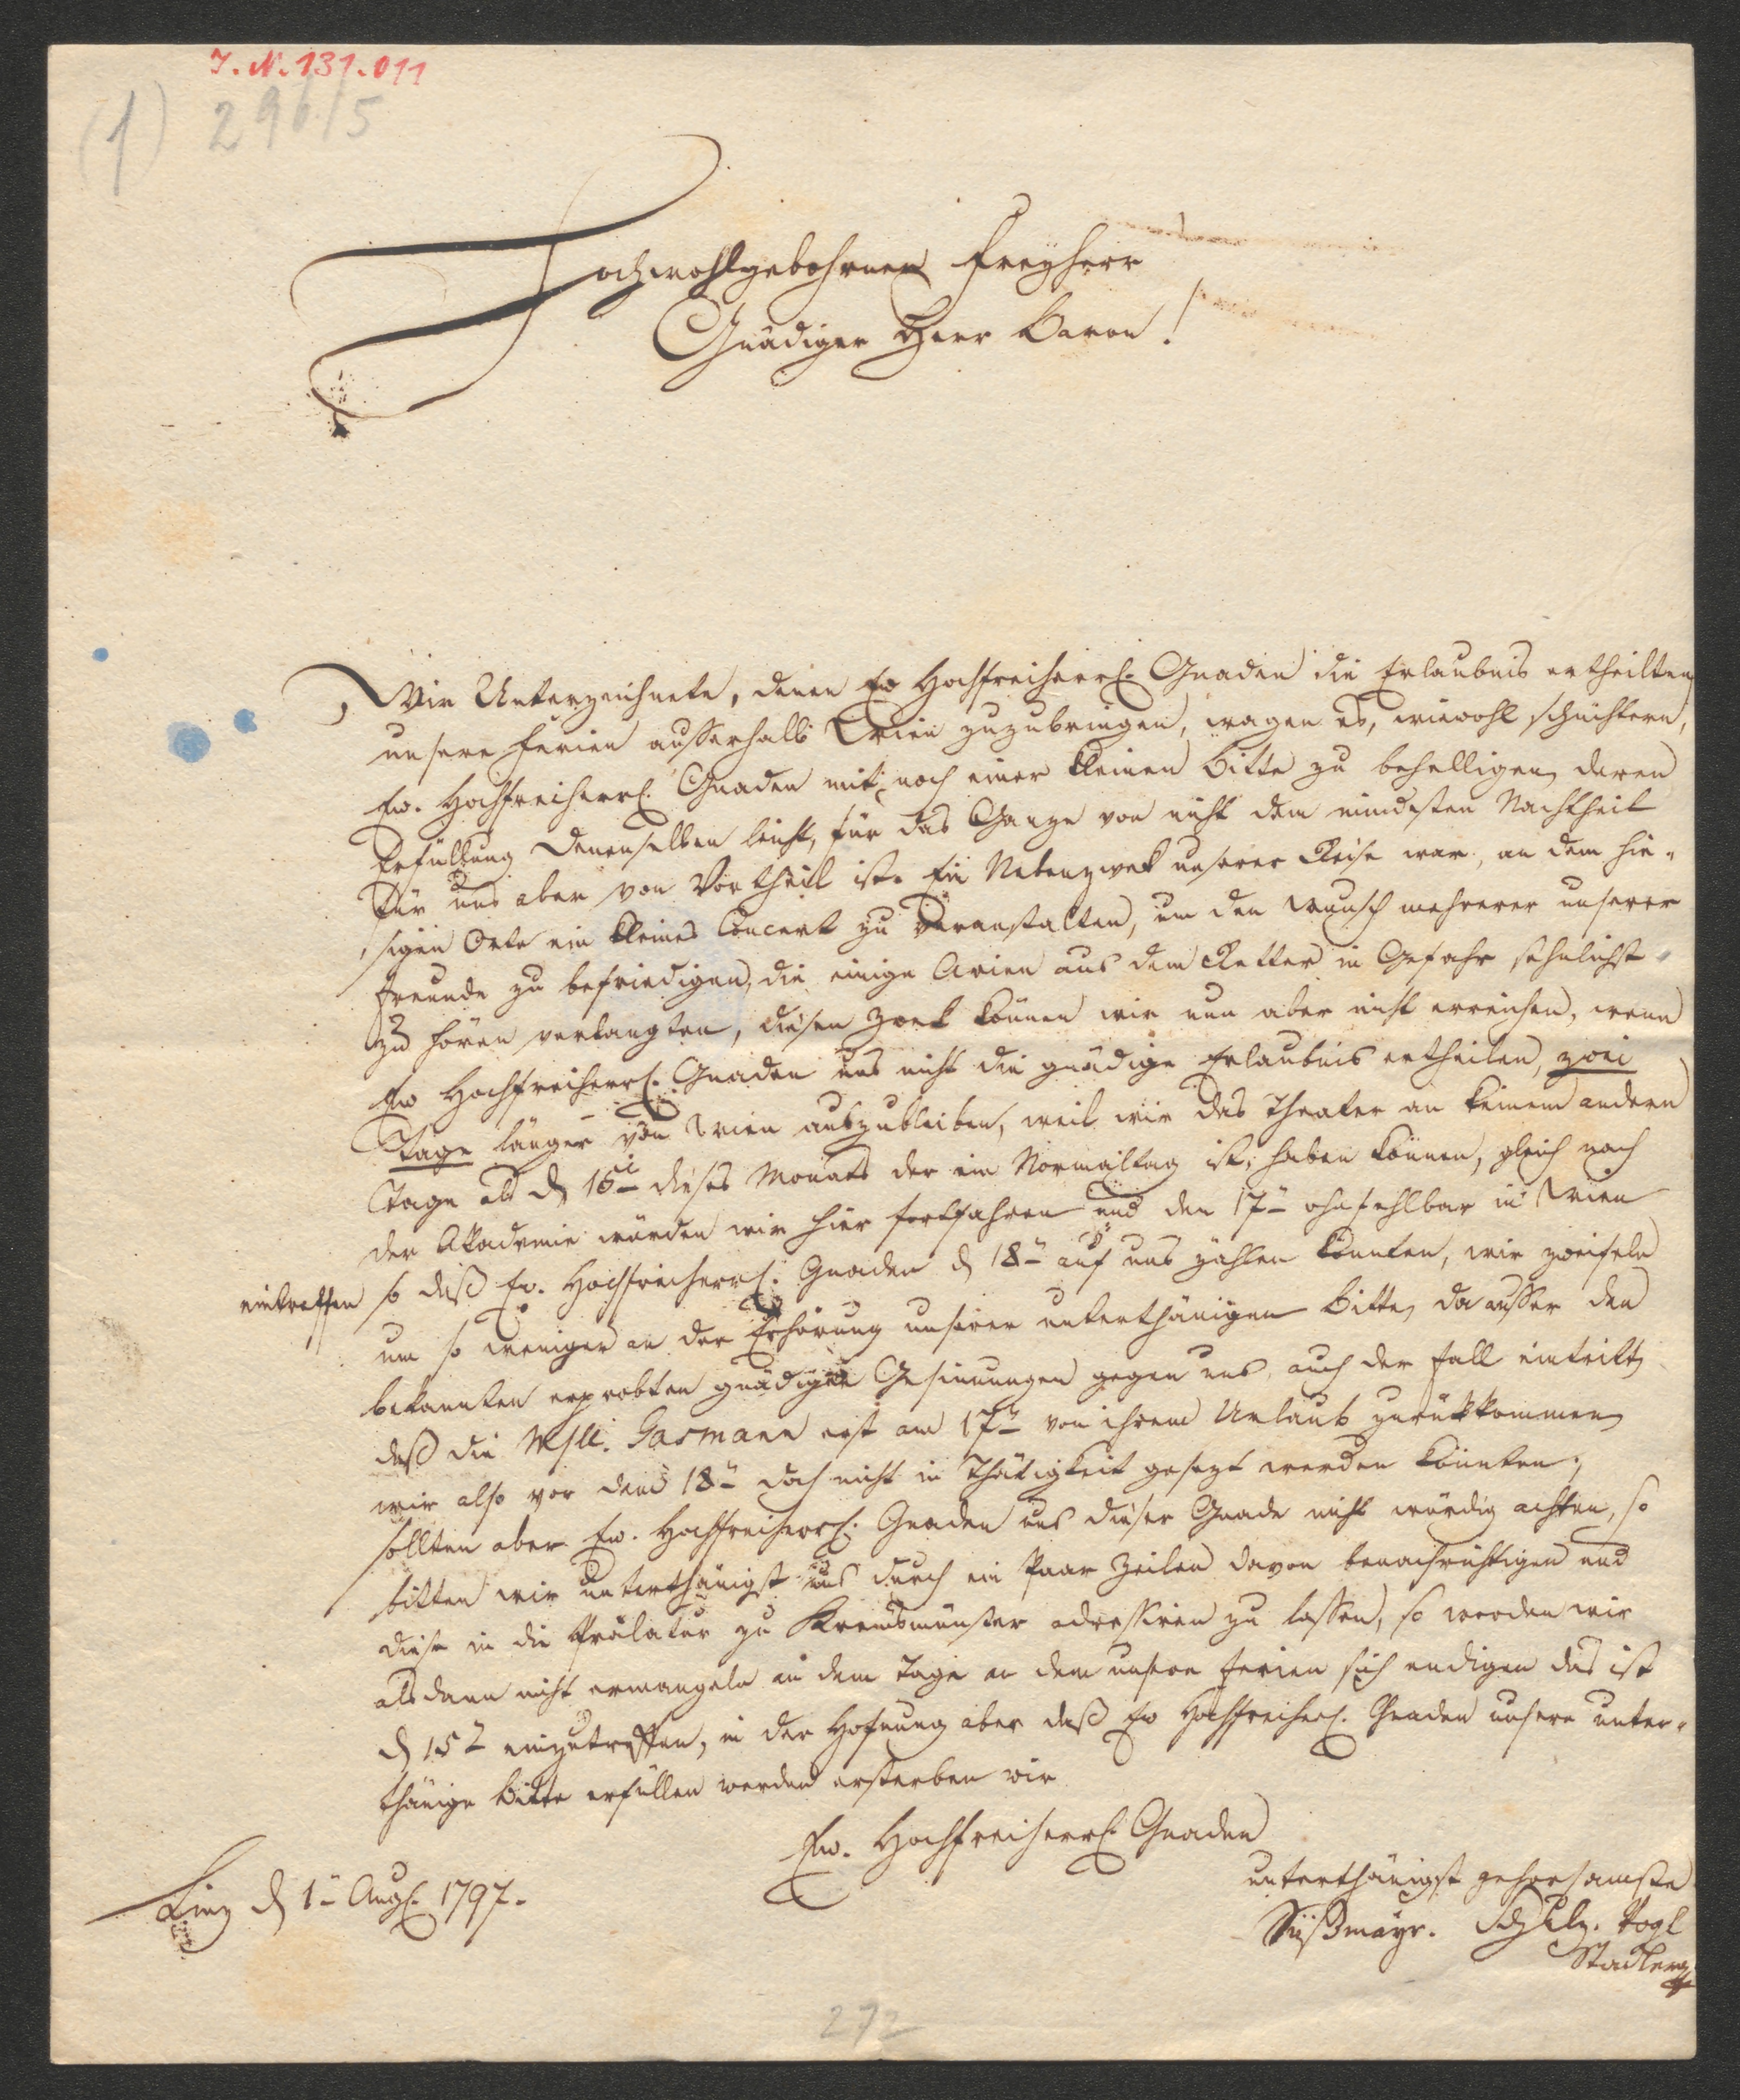 I. N. 131.011
(1) 296/5
Hochwohlgebohrner Freyherr
Gnädiger Herr Baron!
Wir Unterzeichnete, denen Ew Hochfreiherrl. Gnaden die Erlaubnis ertheilten
unsere Ferien ausserhalb Wien zuzubringen, wagen es, wiewohl schüchtern,
Ew. Hochfreiherrl. Gnaden mit noch einer kleinen Bitte zu behelligen, deren
Erfüllung denenselben leicht, für das Ganze von nicht dem mindesten Nachtheil
für uns aber von Vortheil ist. Ein Nebenzwek unserer Reise war, an dem hie-
sigen Orte ein kleines Concert zu veranstalten, um den Wunsch mehrerer unserer
Freunde zu befriedigen, die einige Arien aus dem Retter in Gefahr sehnlichst
zu hören verlangten, diesen Zwek können wir nun aber nicht erreichen, wenn
Ew Hochfreiherrl. Gnaden uns nicht die gnädige Erlaubnis ertheilen, zwei
Tage länger von Wien auszubleiben, weil wir das Theater an keinem andern
Tage als d 15 dieses Monats der ein Normaltag ist, haben können, gleich nach
der Akademie würden wir hier fortfahren und den 17 ohnfehlbar in Wien
eintreffen so daß Ew. Hochfreiherrl. Gnaden d 18 auf uns zählen könnten, wir zweifeln
um so weniger an der Erhörung unserer unterthänigen Bitte, da ausser den
bekannten erprobten gnädigen Gesinnungen gegen uns, auch der Fall eintritt,
daß die Mslle. Gasmann erst am 17 von ihrem Urlaub zurükkommen,
wir also vor dem 18 doch nicht in Thätigkeit gesezt werden könnten,
sollten aber Ew. Hochfreiherrl. Gnaden uns dieser Gnade nicht würdig achten, so
bitten wir unterthänigst uns durch ein Paar Zeilen davon benachrichtigen und
diese in die Prälatur zu Kremsmünster adressiren zu lassen, so werden wir
alsdann nicht ermangeln an dem Tage an dem unsere Ferien sich endigen das ist
d 15 einzutreffen, in der Hofnung aber daß Ew Hochfreiherrl. Gnaden unsere unter-
thänige Bitte erfüllen werden ersterben wir
Ew. Hochfreiherrl. Gnaden
Linz d 1 Aug. 1797.
unterthänigst gehorsamste
Süßmayr. Vogl
Stadler
272